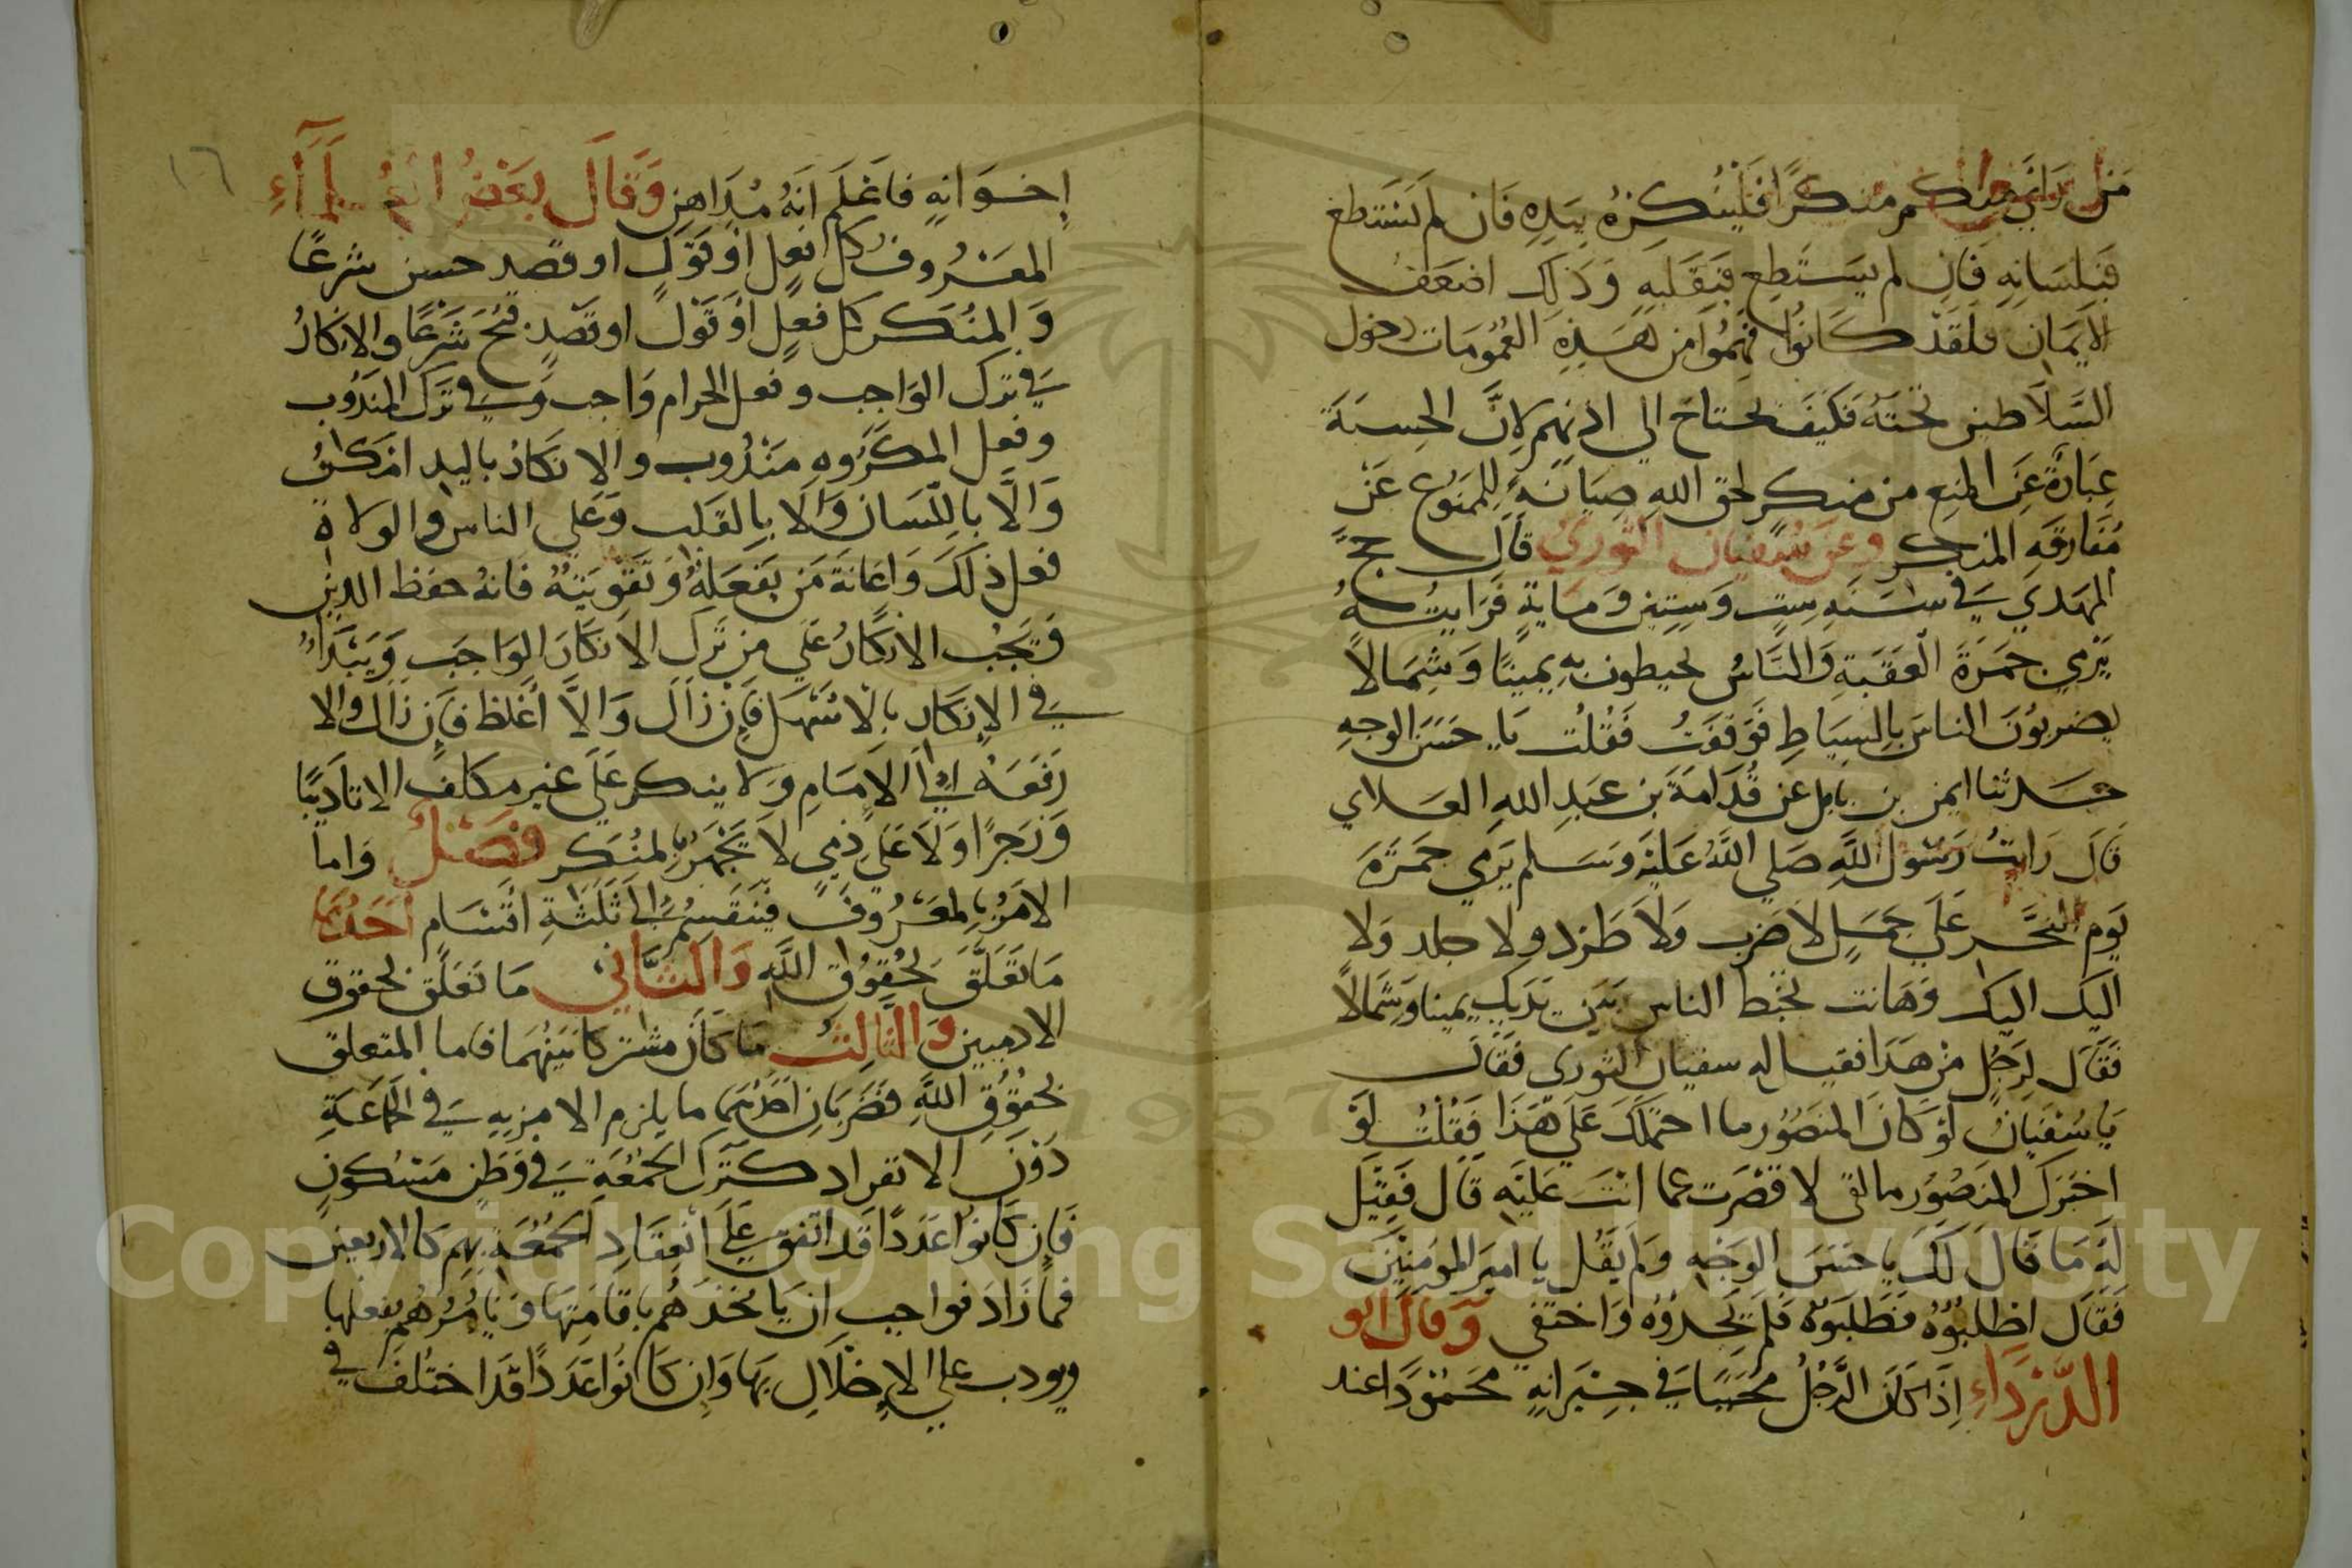 من رأى منكم منكرًا فلينكره بيده فان لم يستطع
فبلسانه فان لم يستطع فبقلبه وذلك اضعف
الايمان فلقد كانوا فهموا من هذه العمومات دخول
السلاطين تحته فكيف يحتاج الي اذنهم لان الحسبة
عبارة عن المنع من منكر لحق الله صيانة للممنوع عن
مفارقه المنكر وعن سفيان الثوري قال حج
المهدي في سنه ست وستين ومايه فرايته
يرمي جمرة العقبة والناس يحيطون به يمينًا وشمالاً
يضربون الناس بالسياط فوقفت فقلت يا حسن الوجه
حدثنا ايمن بن نابل عن قدامة بن عبد الله العلاي
قال رايت رسول الله صلي الله عليه وسلم يرمي جمرة
يوم النحر علي جمل لا ضرب ولا طرد ولا جلد ولا
اليك اليك وها انت يخبط الناس بين يديك يمينا وشمالاً
فقال لرجل من هذا فقيل له سفيان الثوري فقال
يا سفيان لو كان المنصور ما احتملك علي هذا فقلت لو
اخبرك المنصور ما لقي لاقصرت عما انت عليه قال فقيل
له ما قال لك يا حسن الوجه ولم يقل يا امير المومنين
فقال اطلبوه فطلبوه فلم يجدوه واختفي وقال ابو
الدرداء اذا كان الرجل محببا في جيرانه محمودًا عند
١٦
إخوانه فاعلم انه مداهن وقال بعض العلماء
المعروف كل فعل أو قول او قصد حسن شرعًا
والمنكر كل فعل أو قول او قصد قبح شرعًا والانكار
في ترك الواجب وفعل الحرام واجب وفي ترك المندوب
وفعل المكروه مندوب والانكار باليد ان امكن
والا باللسان والا بالقلب وعلي الناس والولاة
فعل ذلك واعانة من يفعله وتقويته فانه حفظ الدين
فيجب الانكار علي من ترك الانكار الواجب ويبدأ
في الانكار بالاسهل فإن زال والا أغلظ فإن زال والا
رفعه الي الامام ولا ينكر علي غير مكلف الا تاديبًا
وزجرًا ولا علي ذمي لا يجهر بالمنكر فصل واما
الامر بالمعروف فينقسم الي ثلثة اقسام أحدها
ما تعلق بحقوق الله والثاني ما تعلق بحقوق
الادميين والثالث ما كان مشتركا بينهما فاما المتعلق
بحقوق الله فضربان احدهما ما يلزم الامر به في الجماعة
دون الانفراد كترك الجمعة في وطن مسكون
فان كانوا عددًا قد اتفق علي انعقاد الجمعة بهم كالاربعين
فما زاد فواجب ان ياخذهم باقامتها ويامرهم بفعلها
ويودب علي الإخلال بها وان كانوا عددًا قد اختلف في
Copyright © King Saud University
1957